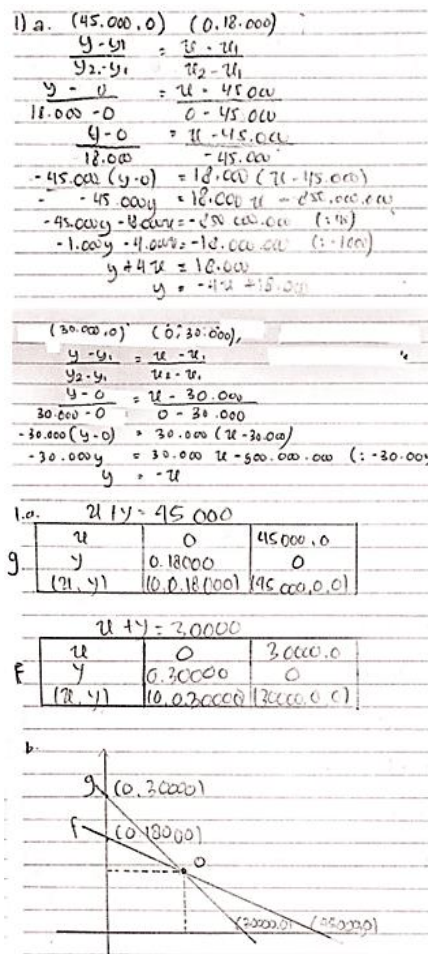 1) a. (45.000,0) (0,18.000)
y-y1 / y2-y1 = x-x1 / x2-x1
y-0 / 18.000-0 = x-45.000 / 0-45.000
y-0 / 18.000 = x-45.000 / -45.000
-45.000 (y-0) = 18.000 (x-45.000)
- -45.000y = 18.000 x -
-45.000y
-1.00y - 4.000x = -18.000.000 (:-1000)
y+4x = 18.000
y = -4x +18.000
(30.000,0) (0,30.000),
y-y1 / y2-y1 = x-x1 / x2-x1
y-0 / 30.000-0 = x-30.000 / 0-30.000
-30.000(y-0) = 30.000 (x-30.000)
-30.000y = 30.000 x -900.000.000 (:-30.00y
y = -x
1.a. x+y = 45 000
x 0 45000,0
g y 0.18000 0
(x,y) (0,0.18000) (45.000,0,0)
x+y = 30000
x 0 30000,0
F y 0.30000 0
(x,y) (0,0.30000) (30000,0,0)
b.
g (0,30000)
F (0,18000)
0
(30000,0) (45000,0)